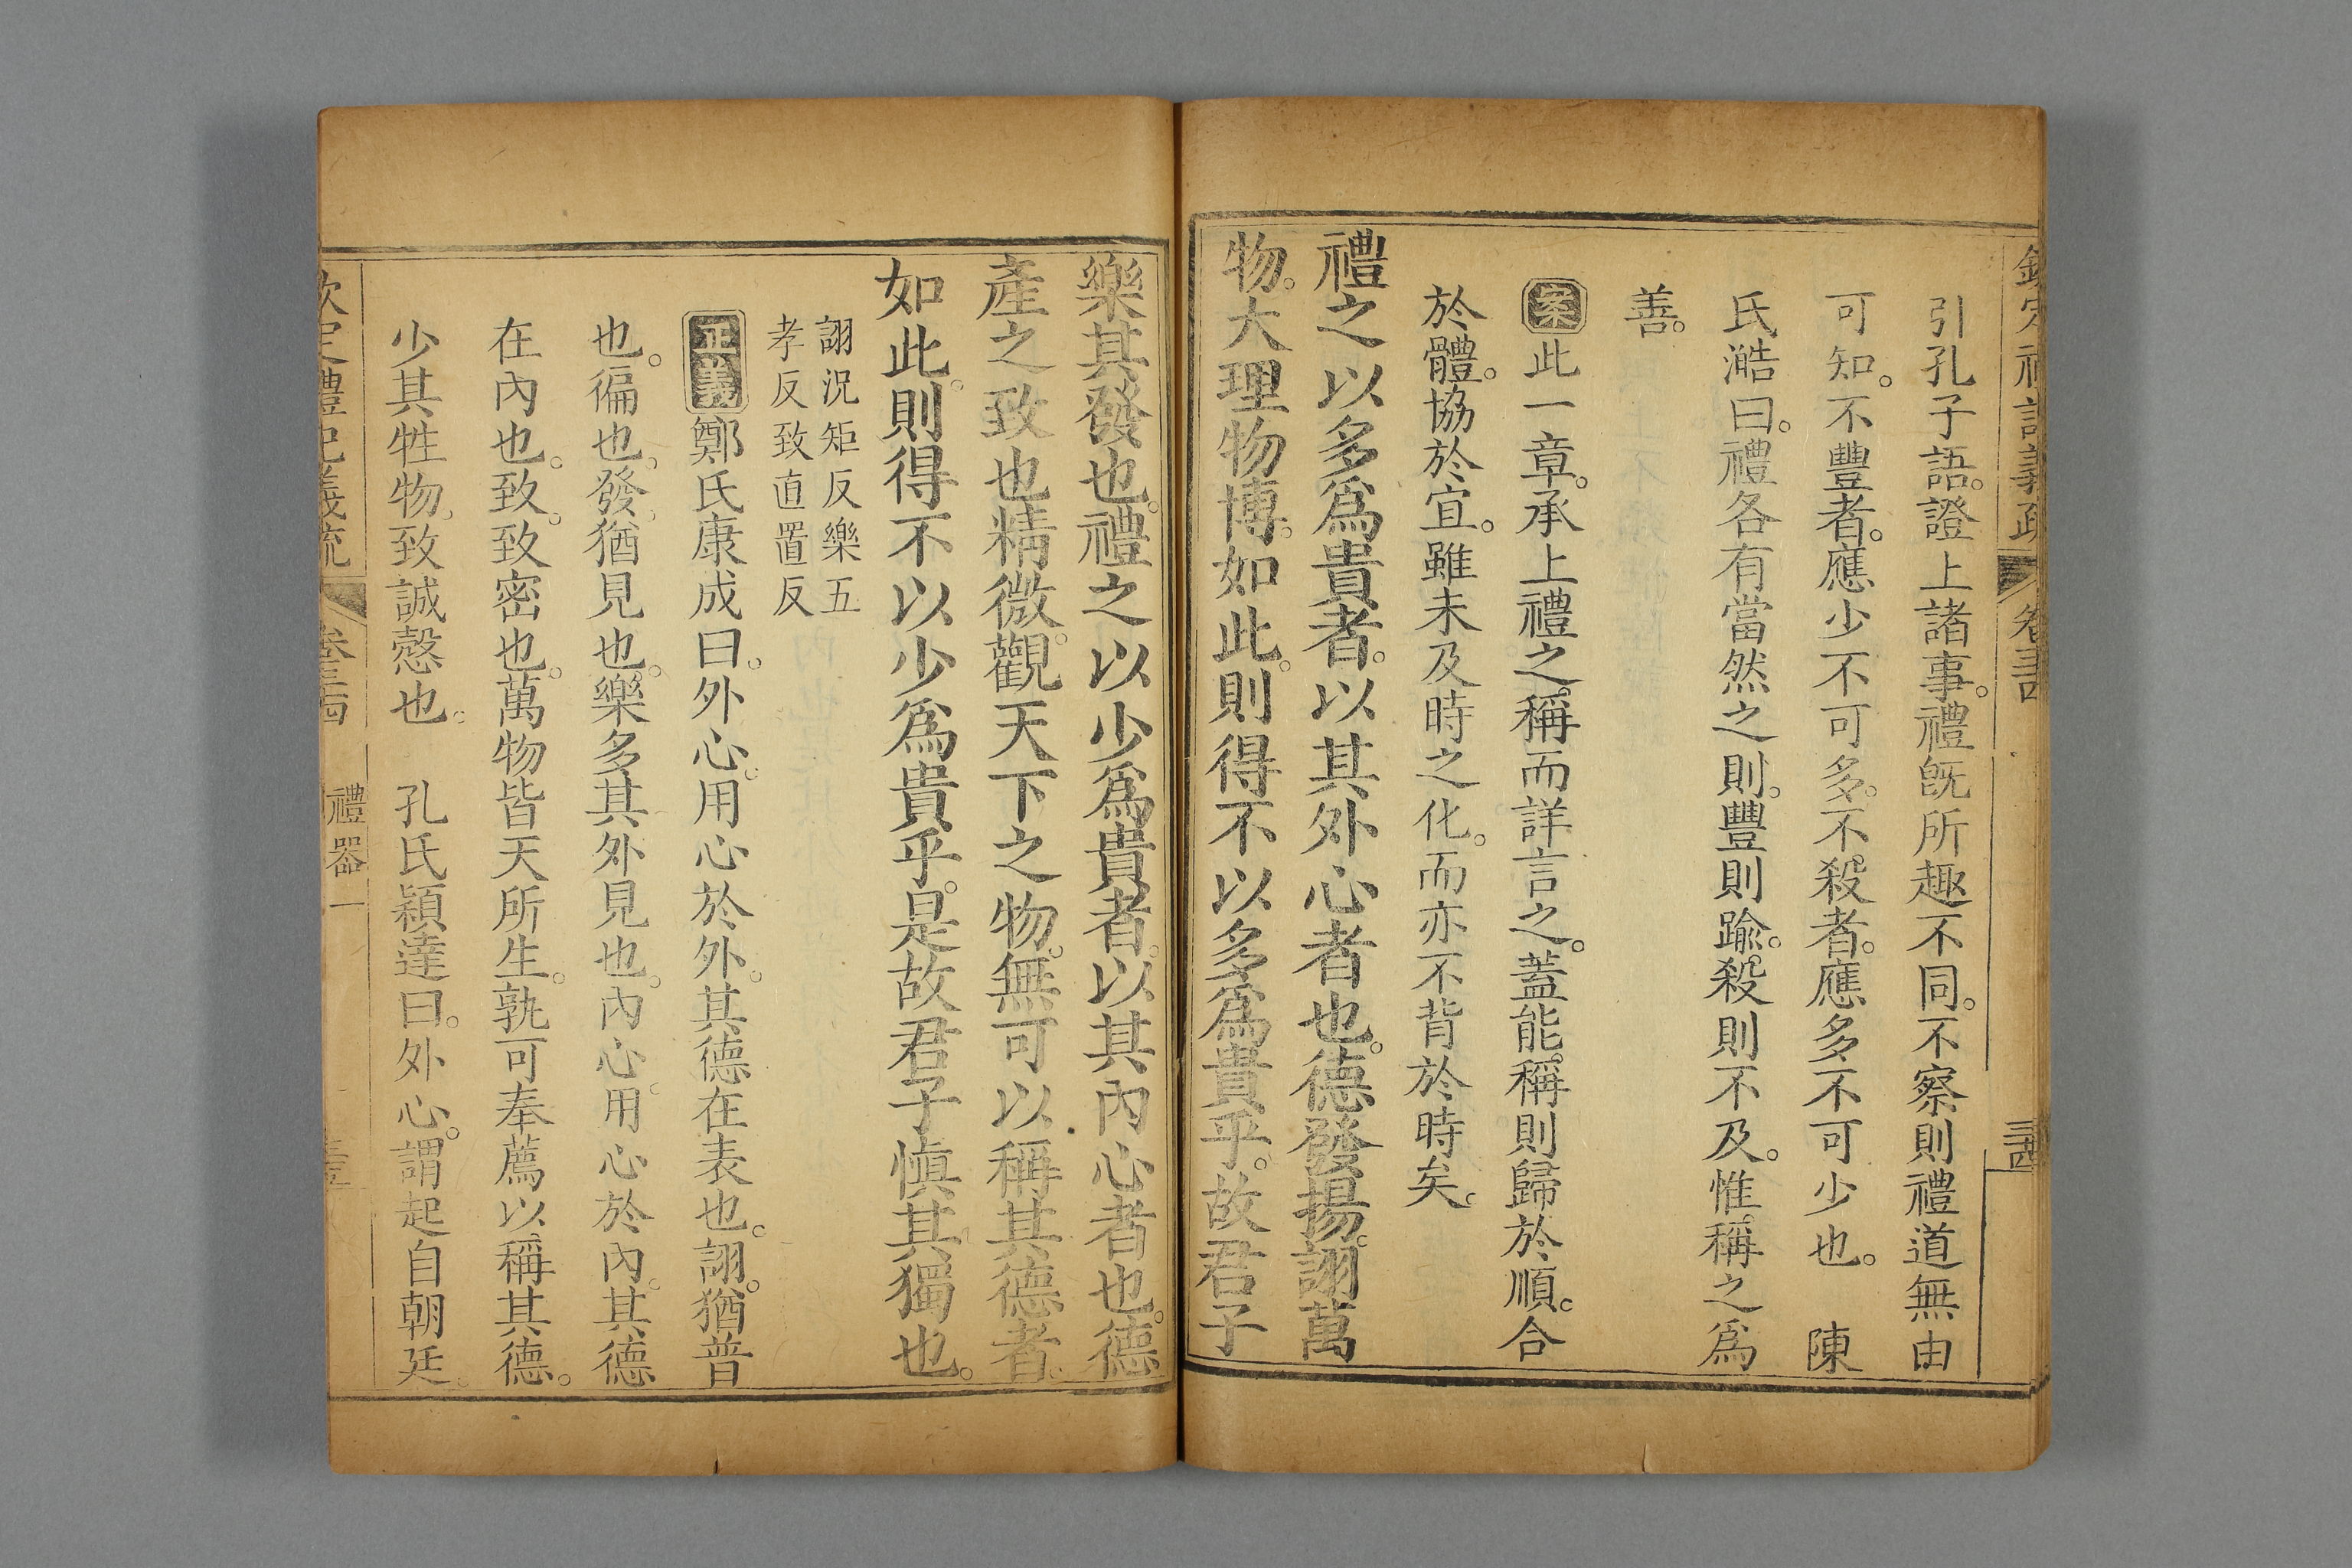 欽定禮記義疏 卷三十四 三十四
引孔子語。證上諸事。禮旣所趣不同。不察則禮道無由
可知。不豐者。應少不可多。不殺者。應多不可少也。 陳
氏澔曰。禮各有當然之則。豐則踰。殺則不及。惟稱之爲
善。
案此一章。承上禮之稱而詳言之。蓋能稱則歸於順。合
於體。協於宜。雖未及時之化。而亦不背於時矣。
禮之以多爲貴者。以其外心者也。德發揚。詡萬
物。大理物博。如此。則得不以多爲貴乎。故君子
樂其發也。禮之以少爲貴者。以其內心者也。德
產之致也精微。觀天下之物。無可以稱其德者。
如此。則得不以少爲貴乎。是故君子愼其獨也。
詡況矩反樂五
孝反致直置反
正義鄭氏康成曰。外心。用心於外。其德在表也。詡。猶普
也。徧也。發。猶見也。樂多其外見也。內心。用心於內。其德
在內也。致。致密也。萬物皆天所生。孰可奉薦以稱其德。
少其牲物。致誠慤也。 孔氏穎達曰。外心。謂起自朝廷。
欽定禮記義疏 卷三十四 禮器一